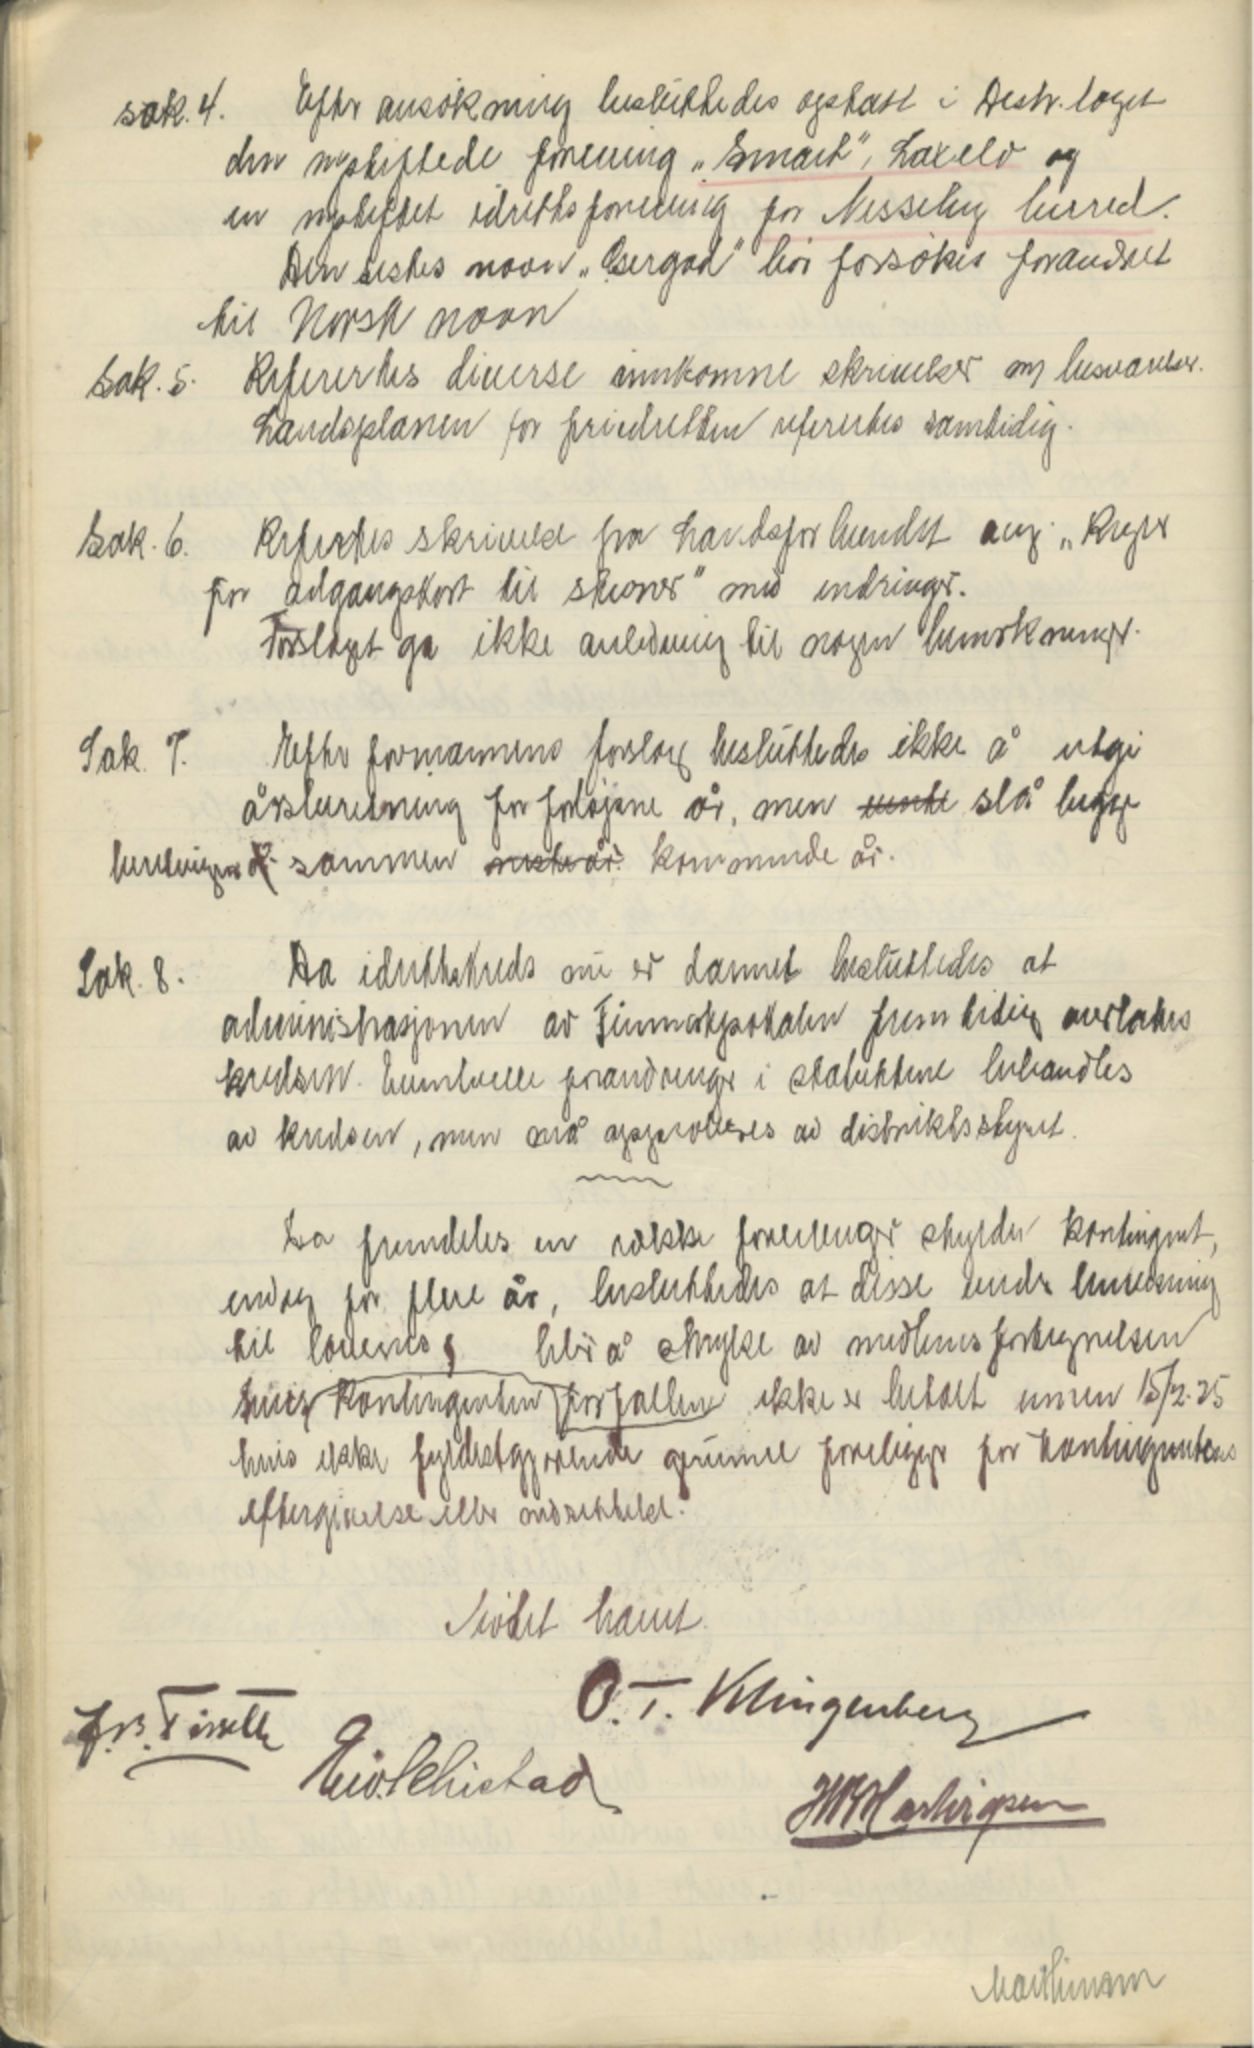 sak. 4. Efter ansøkning besluttedes optatt i Distr. laget
den nystiftede forening „Smart", Laxelv og
en nystiftet idrettsforening for Nesseby herred.
Den sistes navn bør forsøkes forandret
til Norsk navn
Sak. 5. Refertes diverse innkomne skrivelser og besvarelser.
Landsplanen for friidretten refertes samtidig.
Sak. 6. Refertes skrivelse fra Landsforbundet ang. „Regler
for adgangskort til stevner" med endringer.
Forslaget ga ikke anledning til nogen bemerkninger.
Sak. 7. Efter formannens forslag besluttedes ikke å utgi
årsberetning for forløpne år, men vente slå begge
beretninger sammen neste år. kommende år.
Sak. 8. Da idrettskreds nu er dannet besluttedes at
administrasjonen av Finmarkpokalen fremtidig overlates
kredsen. Eventuelle forandringer i statuttene behandles
av kredsen, men må approberes av distriktsstyret.
Da fremdeles en række foreninger skylder kontingent,
endog for flere år, besluttedes at disse under henvisning
til lovenes, blir å stryke av medlemsfortegnelsen
hvis kontingenten forfallen ikke er betalt innen 15/2.25
hvis ikke fyldestgjørende grunne foreligger for kontingentens
eftergivelse eller
Møtet hævet.
O. T. Klingenberg